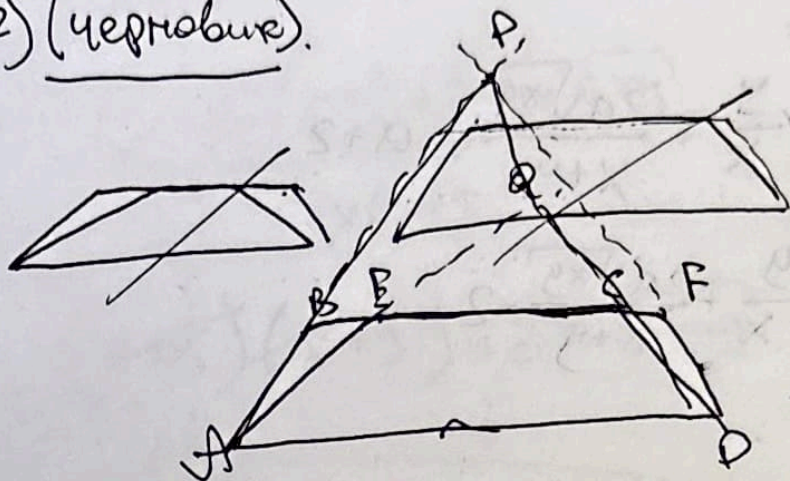 2) (черновик).
P
Q
B E C F
A D